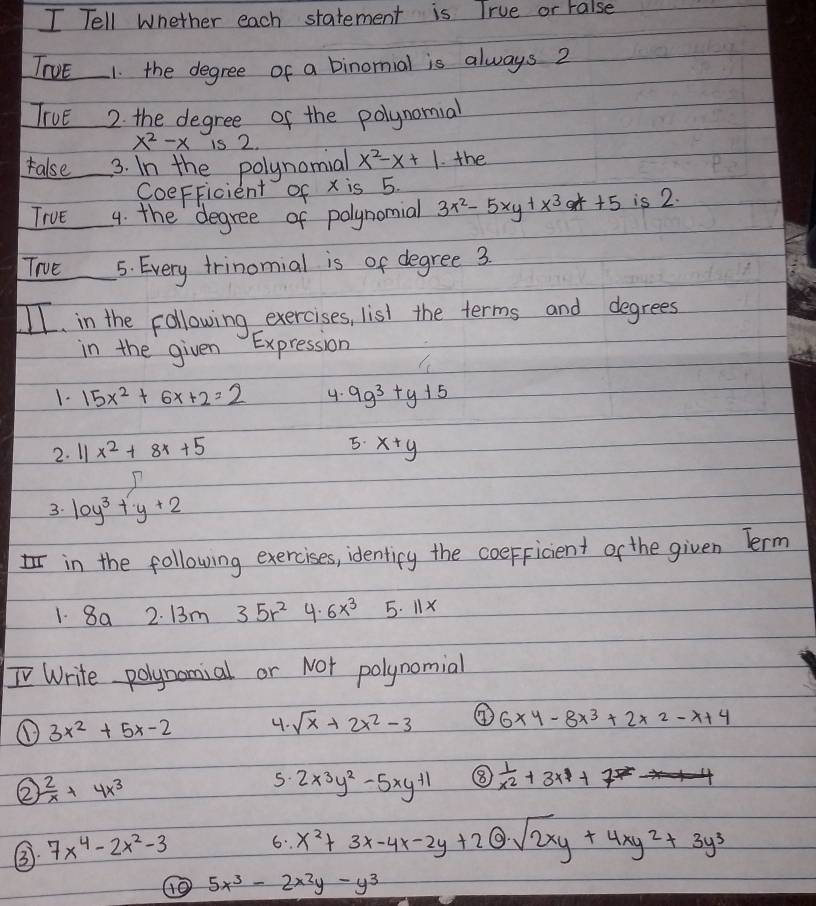 I Tell Whether each statement is True or False
True 1. the degree of a binomial is always 2
True 2. the degree of the polynomial
x² - x is 2.
False 3. In the polynomial x² - x + 1. the
Coefficient of x is 5.
True 4. the degree of polynomial 3x² - 5xy + x³ + 5 is 2.
True 5. Every trinomial is of degree 3.
II. in the following exercises, list the terms and degrees
in the given Expression
1. 15x² + 6x + 2 = 2 4. 9g³ + y + 5
2. 11x² + 8x + 5 5. x + y
3. 10y³ + y + 2
III in the following exercises, identify the coefficient of the given Term
1. 8a 2. 13m 3 5r² 4. 6x³ 5. 11x
IV Write polynomial or Not polynomial
① 3x² + 5x - 2 4. √x + 2x² - 3 ⑦ 6x4 - 8x³ + 2x2 - x + 4
② 2/x + 4x³ 5. 2x3y² - 5xy + 1 ⑧ 1/x² + 3x + 7
③. 7x⁴ - 2x² - 3 6. x² + 3x - 4x - 2y + 2 ⑨. √2xy + 4xy² + 3y³
⑩ 5x³ - 2x²y - y³